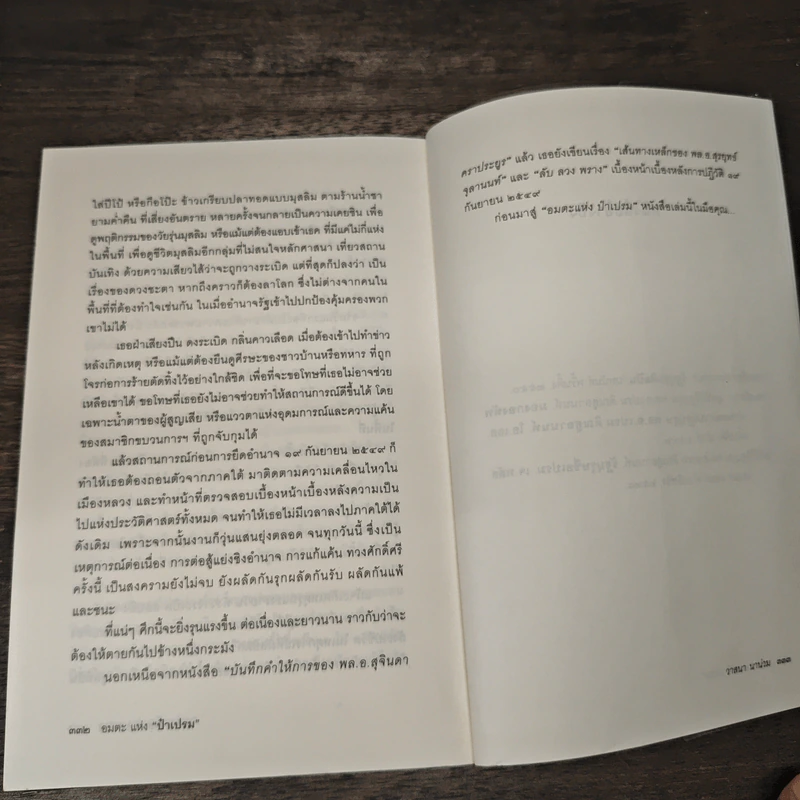 ใส่ปีโป้ หรือกือโป๊ะ ข้าวเกรียบปลาทอดแบบมุสลิม ตามร้านน้ำชา
ยามค่ำคืน ที่เสี่ยงอันตราย หลายครั้งจนกลายเป็นความเคยชิน เพื่อ
ดูพฤติกรรมของวัยรุ่นมุสลิม หรือแม้แต่ต้องแอบเข้าเธค ที่มีแค่ไม่กี่แห่ง
ในพื้นที่ เพื่อดูชีวิตมุสลิมอีกกลุ่มที่ไม่สนใจหลักศาสนา เที่ยวสถาน
บันเทิง ด้วยความเสียวไส้ว่าจะถูกวางระเบิด แต่ที่สุดก็ปลงว่า เป็น
เรื่องของดวงชะตา หากถึงคราวก็ต้องลาโลก ซึ่งไม่ต่างจากคนใน
พื้นที่ที่ต้องทำใจเช่นกัน ในเมื่ออำนาจรัฐเข้าไปปกป้องคุ้มครองพวก
เขาไม่ได้
เธอฝ่าเสียงปืน ดงระเบิด กลิ่นคาวเลือด เมื่อต้องเข้าไปทำข่าว
หลังเกิดเหตุ หรือแม้แต่ต้องยืนดูศีรษะของชาวบ้านหรือทหาร ที่ถูก
โจรก่อการร้ายตัดทิ้งไว้อย่างใกล้ชิด เพื่อที่จะขอโทษที่เธอไม่อาจช่วย
เหลือเขาได้ ขอโทษที่เธอยังไม่อาจช่วยทำให้สถานการณ์ดีขึ้นได้ โดย
เฉพาะน้ำตาของผู้สูญเสีย หรือแววตาแห่งอุดมการณ์และความแค้น
ของสมาชิกขบวนการฯ ที่ถูกจับกุมได้
แล้วสถานการณ์ก่อนการยึดอำนาจ ๑๙ กันยายน ๒๕๔๙ ก็
ทำให้เธอต้องถอนตัวจากภาคใต้ มาติดตามความเคลื่อนไหวใน
เมืองหลวง และทำหน้าที่ตรวจสอบเบื้องหน้าเบื้องหลังความเป็น
ไปแห่งประวัติศาสตร์ทั้งหมด จนทำให้เธอไม่มีเวลาลงไปภาคใต้ได้
ดังเดิม เพราะจากนั้นงานก็วุ่นแสนยุ่งตลอด จนทุกวันนี้ ซึ่งเป็น
เหตุการณ์ต่อเนื่อง การต่อสู้แย่งชิงอำนาจ การแก้แค้น ทวงศักดิ์ศรี
ครั้งนี้ เป็นสงครามยังไม่จบ ยังผลัดกันรุกผลัดกันรับ ผลัดกันแพ้
และชนะ
ที่แน่ๆ ศึกนี้จะยิ่งรุนแรงขึ้น ต่อเนื่องและยาวนาน ราวกับว่าจะ
ต้องให้ตายกันไปข้างหนึ่งกระมัง
นอกเหนือจากหนังสือ “บันทึกคำให้การของ พล.อ.สุจินดา
๓๓๒ อมตะ แห่ง “ป๋าเปรม”
คราประยูร” แล้ว เธอยังเขียนเรื่อง “เส้นทางเหล็กของ พล.อ.สุรยุทธ์
จุลานนท์” และ “ลับ ลวง พราง” เบื้องหน้าเบื้องหลังการปฏิวัติ ๑๙
กันยายน ๒๕๔๙
ก่อนมาสู่ “อมตะแห่ง ป๋าเปรม” หนังสือเล่มนี้ในมือคุณ...
วาสนา นาน่วม ๓๓๓